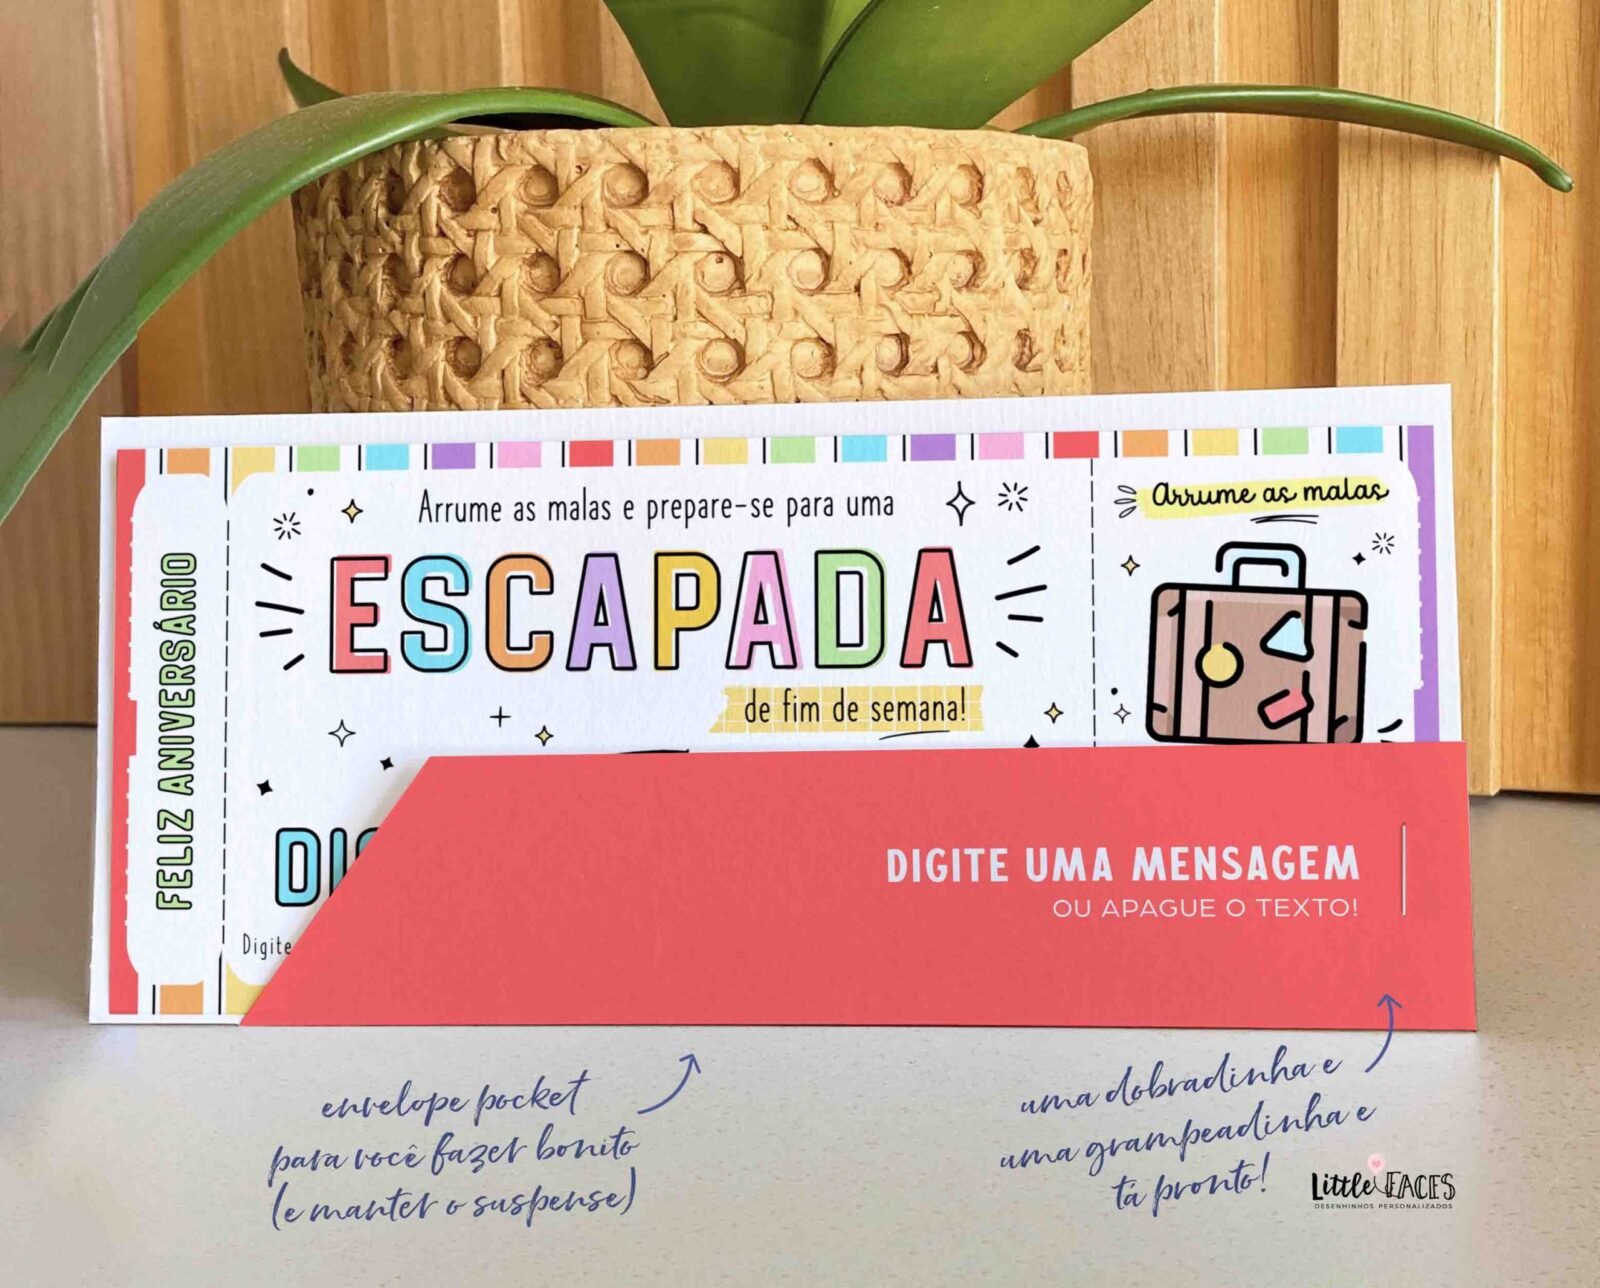 FELIZ ANIVERSÁRIO
Arrume as malas e prepare-se para uma
ESCAPADA
de fim de semana!
arrume as malas
DI
Digite
DIGITE UMA MENSAGEM
OU APAGUE O TEXTO!
envelope pocket
para você fazer bonito
(e manter o suspense)
uma dobradinha e
uma grampeadinha e
tá pronto!
Little FACES
DESENHINHOS PERSONALIZADOS